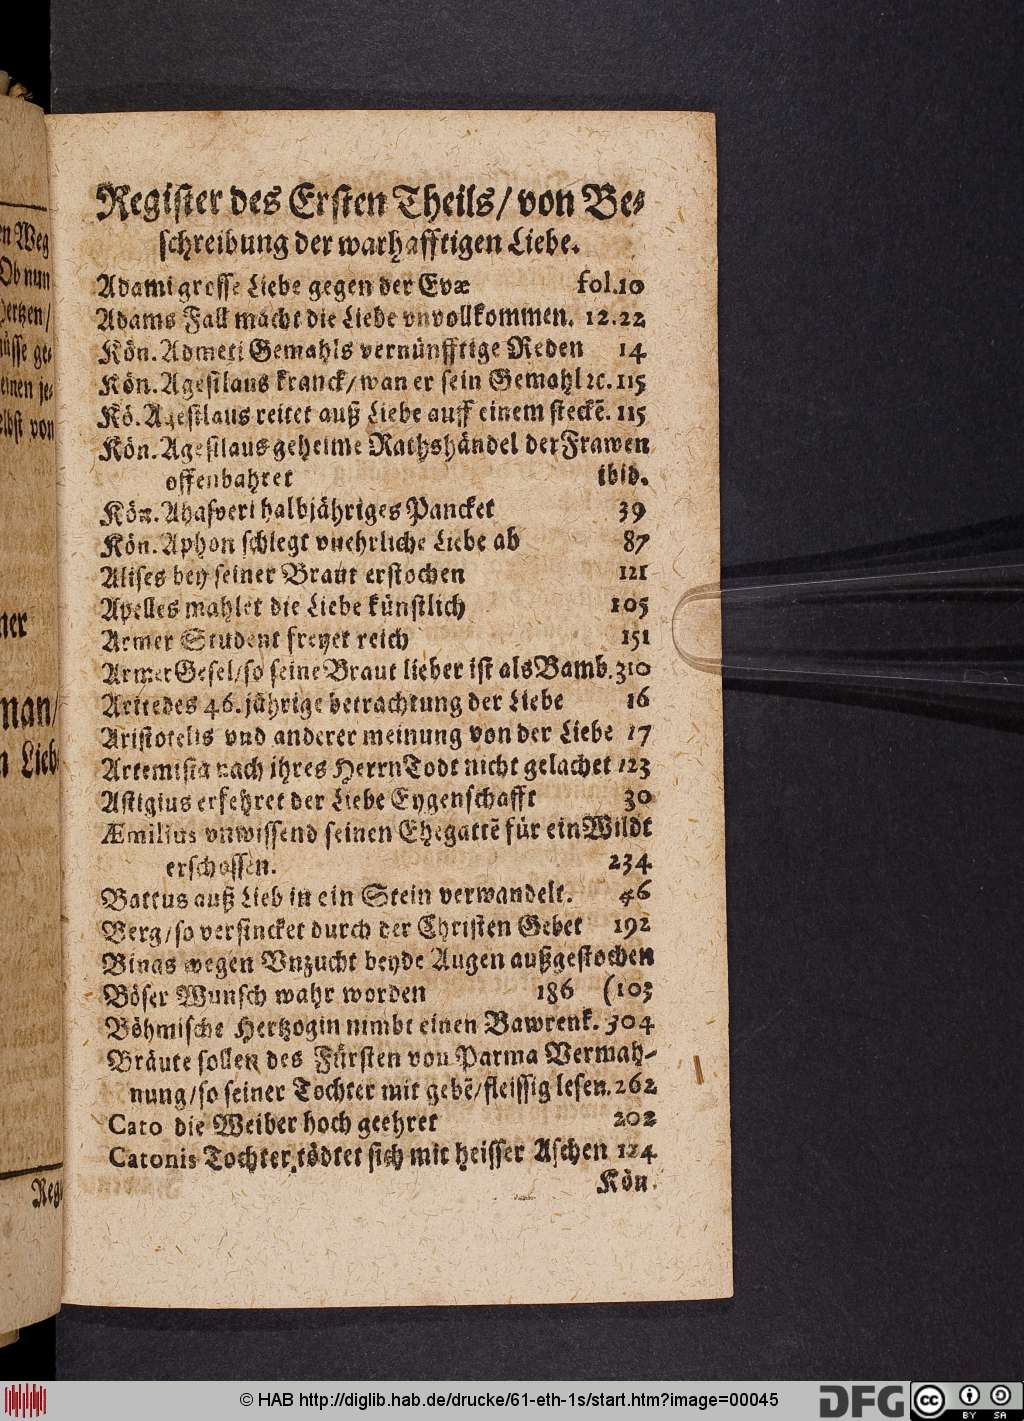 en Weg
Ob nun
hertzen/
üsse ge-
einen je-
elbst von
ner
man/
n Lieb
Reg
Register des Ersten Theils/ von Be-
schreibung der warhafftigen Liebe.
Adami grosse Liebe gegen der Evæ fol.10
Adams Fall macht die Liebe vnvollkommen. 12.22
Kön. Admeti Gemahls vernünfftige Reden 14
Kön. Agesilaus kranck/ wan er sein Gemahl ꝛc. 115
Kö. Agesilaus reitet auß Liebe auff einem steckē. 115
Kön. Agesilaus geheime Rathshändel der Frawen
offenbahret ibid.
Kön. Ahasveri halbjähriges Pancket 39
Kön. Aphon schlegt vnehrliche Liebe ab 87
Alises bey seiner Braut erstochen 121
Apelles mahlet die Liebe künstlich 105
Armer Student freyet reich 151
Armer Gesel/ so seine Braut lieber ist als Bamb. 310
Aritedes 46. jährige betrachtung der Liebe 16
Aristotelis vnd anderer meinung von der Liebe 17
Artemisia nach ihres Herrn Todt nicht gelachet 123
Astigius erfehret der Liebe Eygenschafft 30
Æmilius vnwissend seinen Ehegattē für ein Wildt
erschossen. 234
Battus auß Lieb in ein Stein verwandelt. 46
Berg/ so versincket durch der Christen Gebet 192
Binas wegen Vnzucht beyde Augen außgestochen
Böser Wunsch wahr worden 186 (103
Böhmische Hertzogin nimbt einen Bawrenk. 304
Bräute sollen des Fürsten von Parma Vermah-
nung/ so seiner Tochter mit gebē/ fleissig lesen. 262
Cato die Weiber hoch geehret 202
Catonis Tochter tödtet sich mit heisser Aschen 124
Kön.
© HAB http://diglib.hab.de/drucke/61-eth-1s/start.htm?image=00045
DFG
cc
BY SA